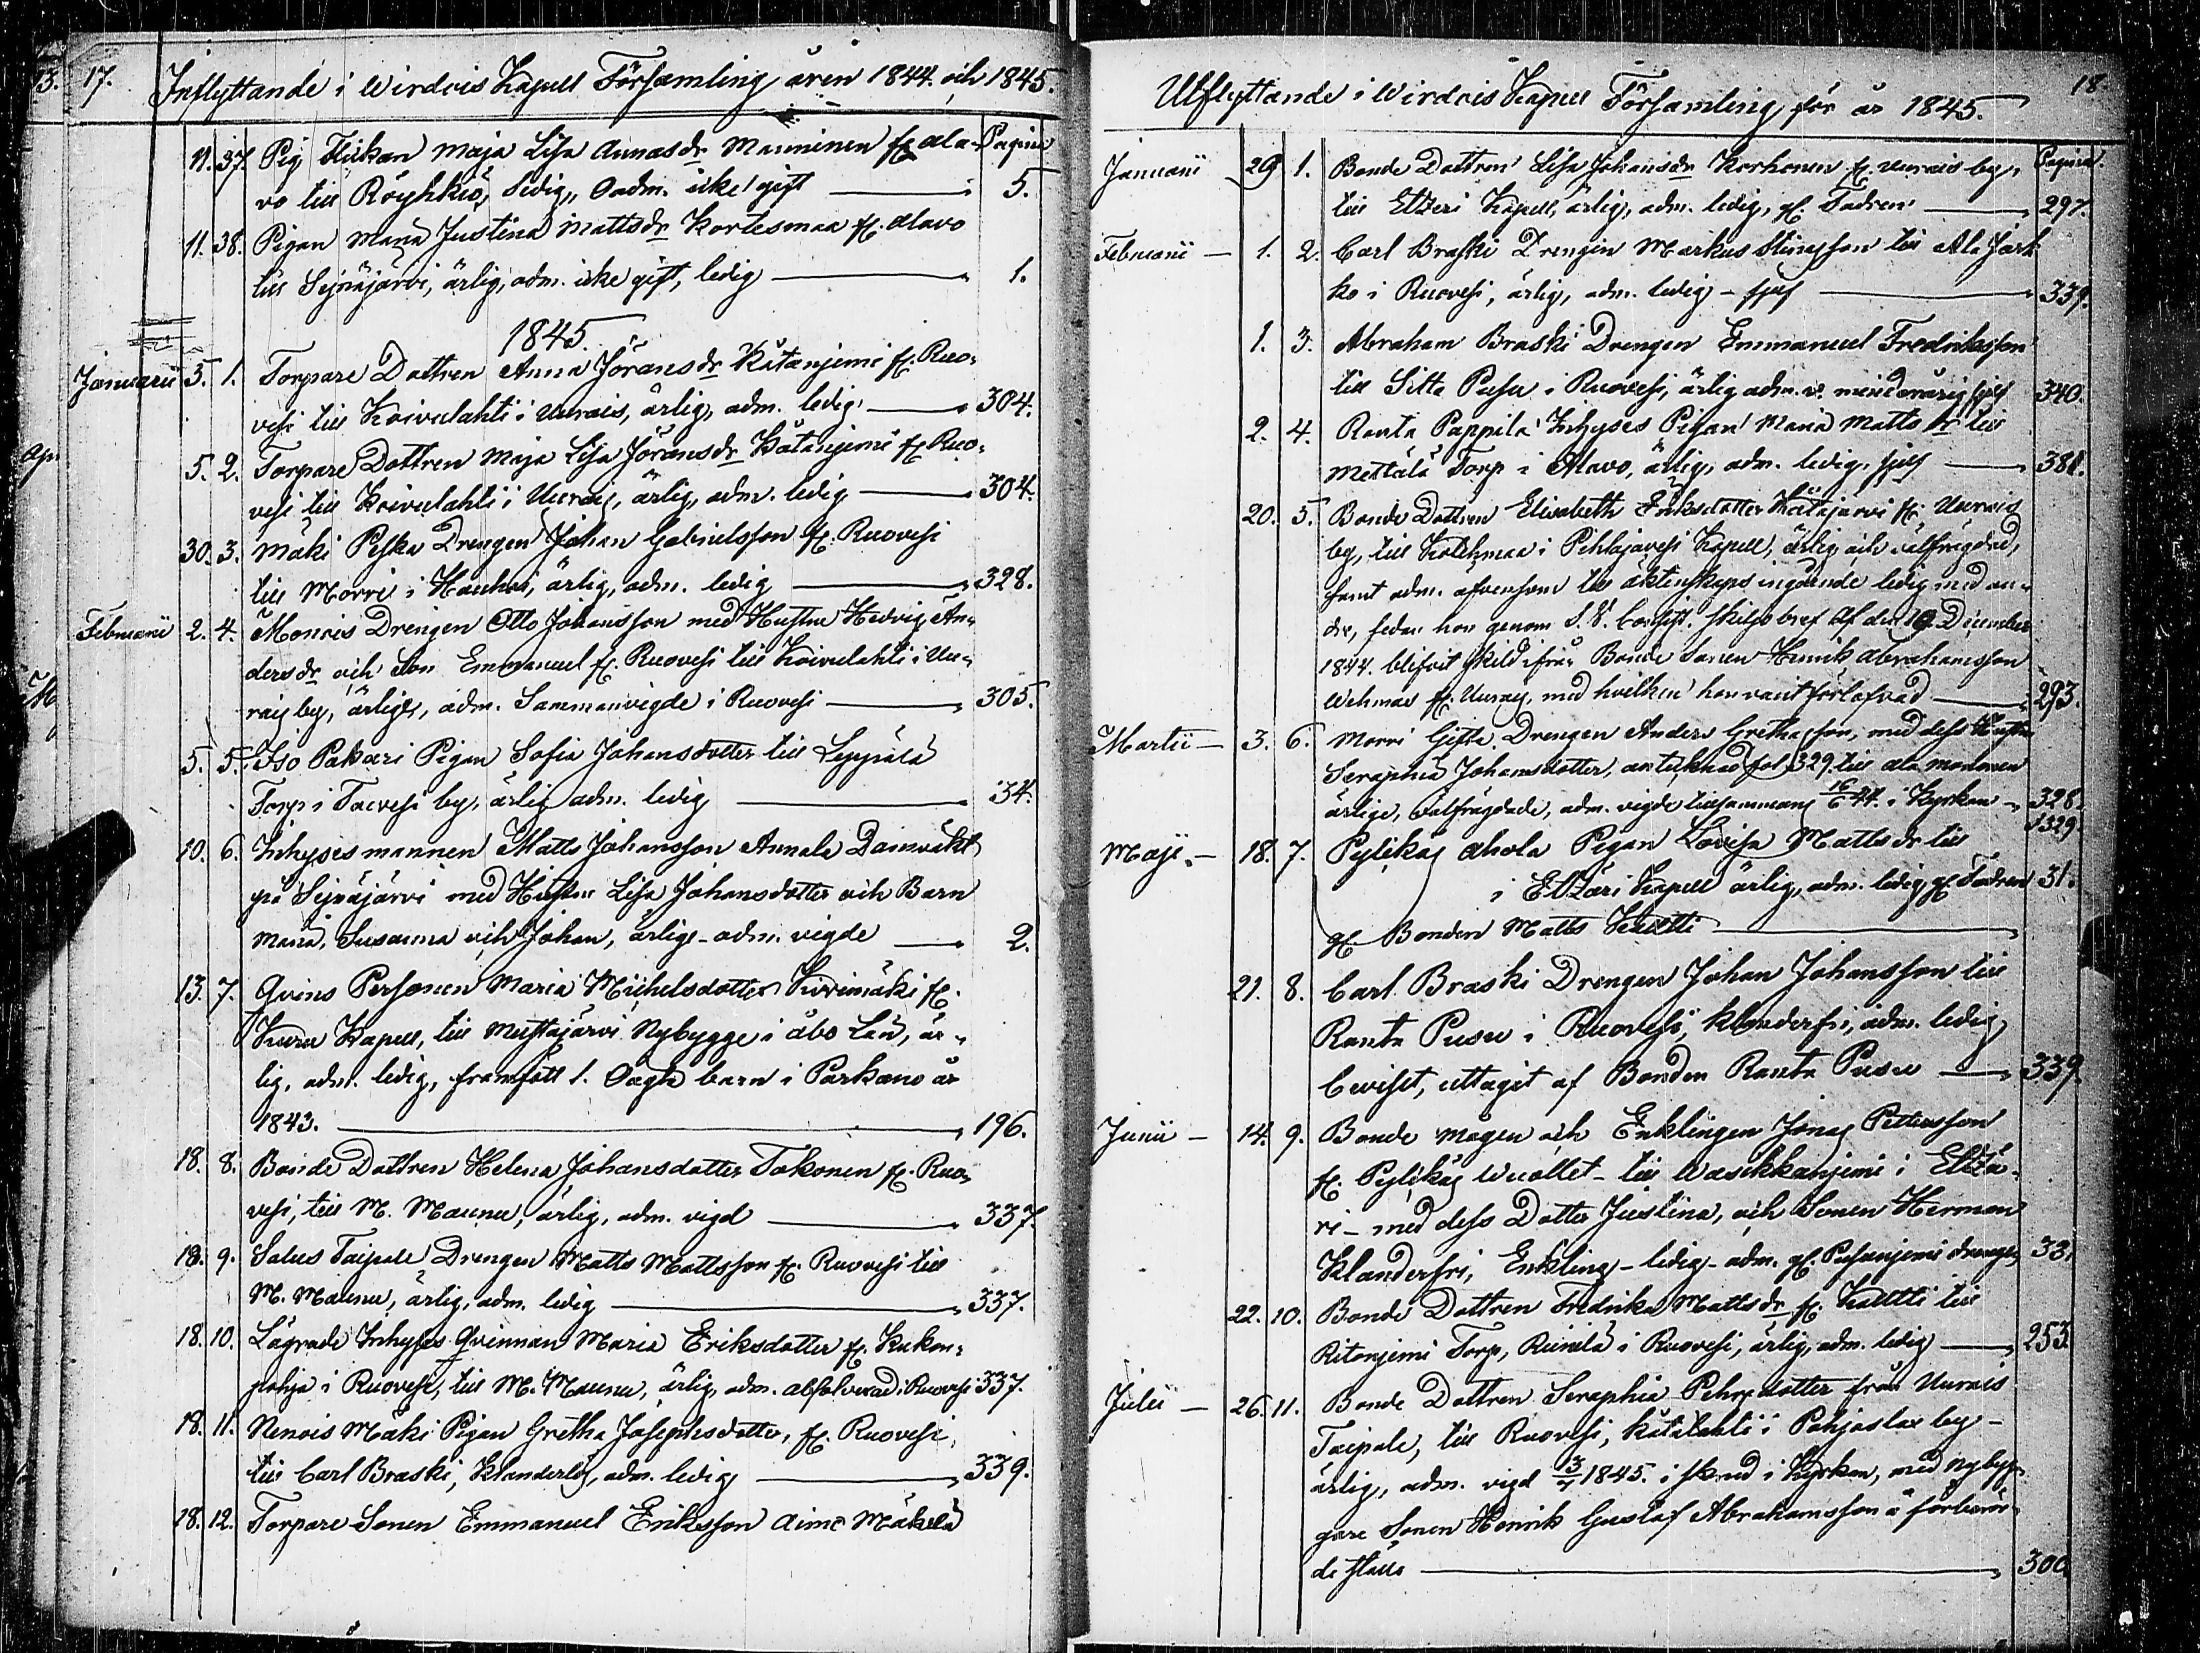 17. Inflyttande i Wirdois Kapell Församling åren 1844. och 1845.
11. 37. Pig Flickan Maja Lisa Annasdr Manninen fr. Ala- Pagina
vo till Röyhkiö, ledig, Oadm. icke gift 5.
11. 38. Pigan Maria Justina Mattsdr Kortesmaa fr. Alavo
till Sejnäjärvi, ärlig, adm. icke gift, ledig 1.
1845.
Januarii 5. 1. Torpare Dottren Anna Jöransdr Katanjemi fr. Ruo-
vesi till Koivulahti i Uurais, ärlig, adm. ledig 304.
5. 2. Torpare Dottren Maja Lisa Jöransdr Katanjemi fr. Ruo-
vesi till Koivulahti i Uurais, ärlig, adm. ledig 304.
30. 3. Mäki Peska Drengen Johan Gabrielsson fr. Ruovesi
till Morri i Hauhu, ärlig, adm. ledig 328.
Februarii 2. 4. Monois Drengen Otto Johansson med Hustru Hedvig An-
dersdr och Son Emmanuel fr. Ruovesi till Koivulahti i Uu-
rais by, ärlige, adm. Sammanvigde i Ruovesi 305.
5. 5. Iso Pakari Pigan Sofia Johansdotter till Leppälä
Torp i Toivesi by, ärlig adm. ledig 34.
10. 6. Inhyses mannen Matts Johansson Annala
på Sejnäjärvi med Hustru Lisa Johansdotter och Barn
Maria, Susanna och Johan, ärlige adm. vigde 2.
13. 7. Qvins Personen Maria Michelsdotter Kivimäki fr.
Kuru Kapell, till Mustajärvi Nybygge i Åbo Län, är-
lig, adm. ledig, framfödt 1. Oägta barn i Parkano år
1843. 196.
18. 8. Bonde Dottren Helena Johansdotter Tokonen fr. Ruo-
vesi, till M. Maunu, ärlig, adm. vigd 337
18. 9. Salus Taipale Drengen Matts Mattsson fr. Ruovesi till
M. Maunu, ärlig, adm. ledig 337.
18. 10. Lägrade Inhyses Qvinnan Maria Eriksdotter fr. Kukon-
pohja i Ruovesi, till M. Maunu, ärlig, adm. absolverad i Ruovesi 337.
18. 11. Nenois Mäki Pigan Gretha Josephsdotter, fr. Ruovesi,
till Carl Braski, Klanderlös, adm. ledig 339.
18. 12. Torpare Sonen Emmanuel Eriksson Aimo Mäkelä
Utflyttande i Wirdois Kapell Församling för år 1845. 18.
Januarii 29 1. Bonde Dottren Lisa Johansdr Korhonen fr. Uurais by, Pagina
till Etzeri Kapell, ärlig, adm. ledig, gf. Fadren 297.
Februarii 1. 2. Carl Braski Drengen Markus Stinasson till Ala Jark
ko i Ruovesi, ärlig, adm. ledig - sjelf 339.
1. 3. Abraham Braski Drengen Emmanuel Fredriksson
till Sitta Pusu i Ruovesi, ärlig adm. o. minderårig sjelf 340.
2. 4. Ranta Pappila Inhyses Pigan Maria Mattsdr till
Mettälä Torp i Alavo, ärlig, adm. ledig, sjelf 381.
20. 5. Bonde Dottren Elisabeth Eriksdotter Kätäjärvi fr. Uurais
by, till Kotehmaa i Pihlajavesi Kapell, ärlig och välfrägdad,
samt adm. äfvensom till äktenskaps ingående ledig med an-
dre, sedan hon genom skiljobref af den 19 December
1844. blifvit skild ifrån Bonde Sonen Henrik Abrahamsson
Wehmas fr. Uurais, med hvilken hon varit förlofvad 293.
Martii 3. 6. Morri Gifte Drengen Anders Grethasson, med dess Hustru
Seraphia Johansdotter, antecknad fol. 329. till Ala
ärlige, välfrägdade, adm. vigde tillsammans 16/6 44. i Kyrkan 328.
&329.
Maji 18. 7. Pylikäs Ahola Pigan Lovisa Mattsdr till
i Etzäri Kapell ärlig, adm. ledig, gf. Fadren 31.
gf. Bonden Matts Kuotti
21. 8. Carl Braski Drengen Johan Johansson till
Ranta Pusu i Ruovesi, klanderfri, adm. ledig
beviset, uttagit af Bonden Ranta Pusu 339.
Junii 14. 9. Bonde mågen och Enklingen Jonas Pettersson
fr. Pylikäs Wuollet till Wasikkanjemi i Etzä-
ri - med dess Dotter Justina, och Sonen Herman
Klanderfri, Enkling - ledig - adm. gf. Pusanjemi drengen 33.
22. 10. Bonde Dottren Fredrika Mattsdr fr. Kallttli till
Ritonjemi Torp, i Ruovesi, ärlig, adm. ledig 253
Julii 26. 11. Bonde Dottren Seraphia Pehrsdotter från Uurais
Taipale, till Ruovesi, i Pohjaslax by -
ärlig, adm. vigd 13/7 1845. i skrud i Kyrkan, med nybyg-
gare Sonen Henrik Gustaf Abrahamsson å förberör-
de ställe 300